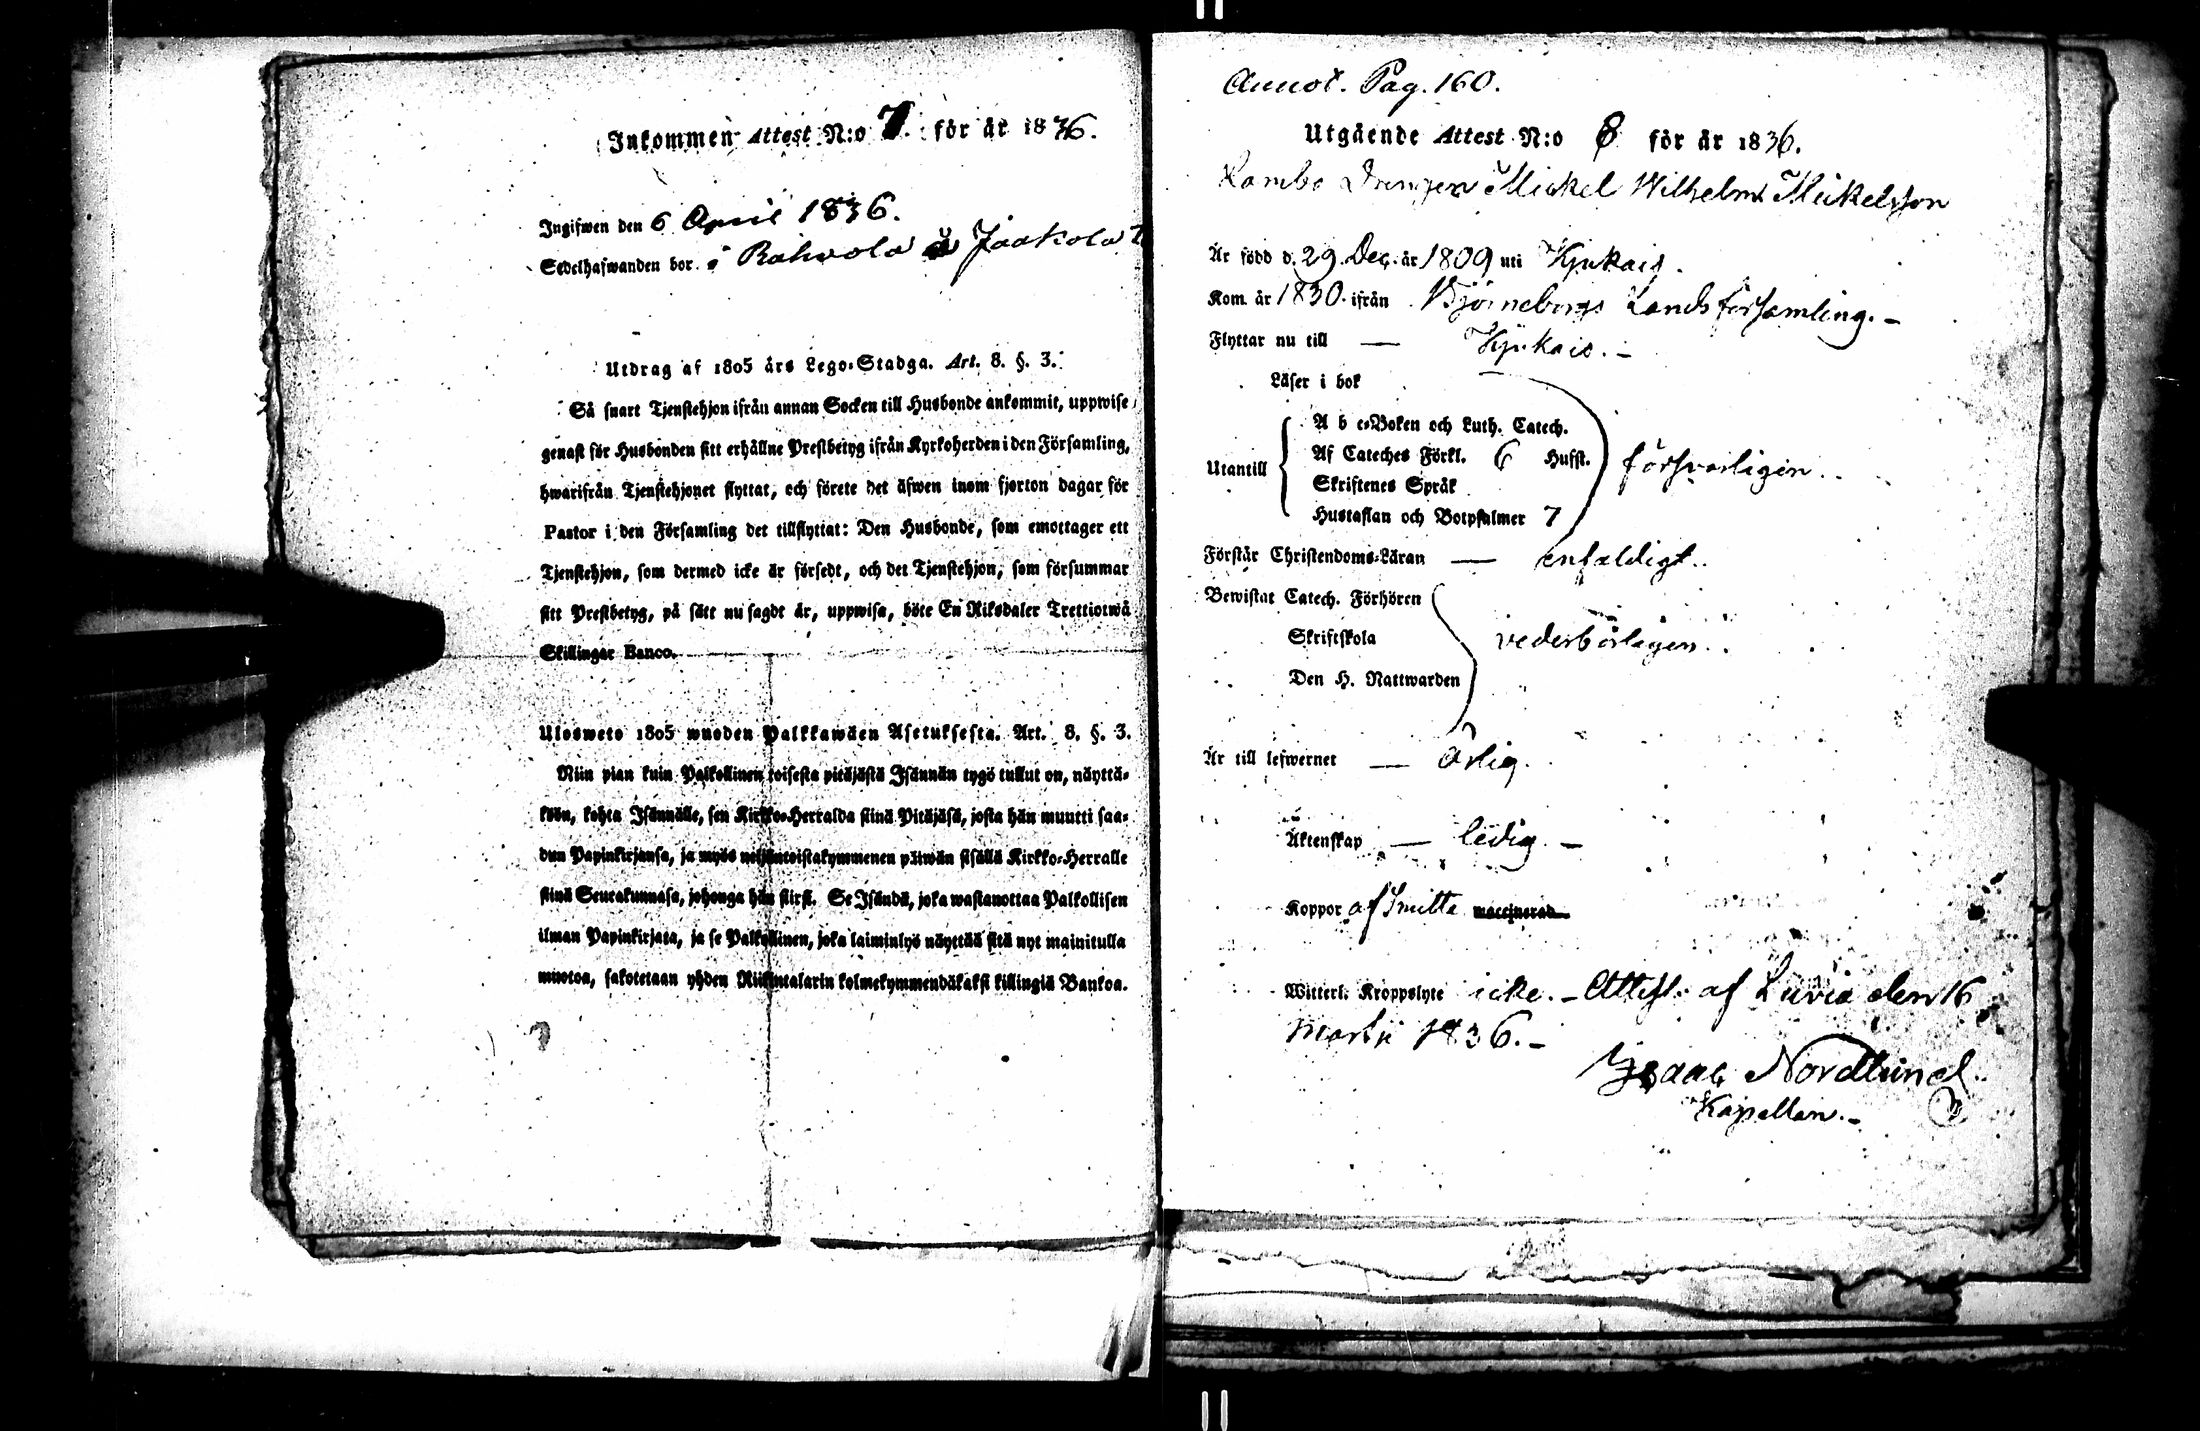 Inkommen Attest N:o 7. för år 1836.
Ingifwen den 6 April 1836.
Sedelhafwanden bor i Rahvola å Jaakola
Utdrag af 1805 års Lego-Stadga. Art. 8. §. 3.
Så snart Tjenstehjon ifrån annan Socken till Husbonde ankommit, uppwise
genast för Husbonden sitt erhållne Prestbetyg ifrån Kyrkoherden i den Församling,
hwarifrån Tjenstehjonet flyttat, och förete det äfwen inom fjorton dagar för
Pastor i den Församling det tillflyttat: Den Husbonde, som emottager ett
Tjenstehjon, som dermed icke är försedt, och det Tjenstehjon, som försummar
sitt Prestbetyg, på sätt nu sagdt är, uppwisa, böte En Riksdaler Trettiotwå
Skillingar Banco.
Ulosweto 1805 wuoden Palkkawäen Asetuksesta. Art. 8. §. 3.
Niin pian kuin Palkollinen toisesta pitäjästä Isännän tygö tullut on, näyttä-
köön, kohta Isännälle, sen Kirkko-Herralda siinä Pitäjäsä, josta hän muutti saa-
dun Papinkirjansa, ja myös neljäntoistakymmenen päiwän sisällä Kirkko-Herralle
siinä Seurakunnasa, johonga hän siirsi. Se Isändä, joka wastanottaa Palkollisen
ilman Papinkirjata, ja se Palkollinen, joka laiminlyö näyttää sitä nyt mainitulla
muotoa, sakotetaan yhden Riikintalarin kolmekymmendäkaksi killingiä Bankoa.
Annot. Pag. 160.
Utgående Attest N:o 8 för år 1836.
Rambo Drengen Mickel Wilhelm Mickelsson
Är född d. 29 Dec. år 1809 uti Kjukais.
Kom. år 1830. ifrån Björneborgs Landsförsamling. –
Flyttar nu till — Kjukais. –
Läser i bok
A b c-Boken och Luth. Catech.
Utantill Af Cateches Förkl. 6 Hufst. försvarligen.
Skriftenes Språk
Hustaflan och Botpsalmer 7
Förstår Christendoms-Läran — enfaldigt.
Bewistat Catech. Förhören
Skriftskola vederbörligen.
Den H. Nattwarden
Är till lefwernet — ärlig.
Äktenskap — ledig. –
Koppor af smitta vaccinerad
Witterl. Kroppslyte icke. – Attest. af Luvia den 16
Martii 1836. –
Isaac Nordlund.
Kapellan. –